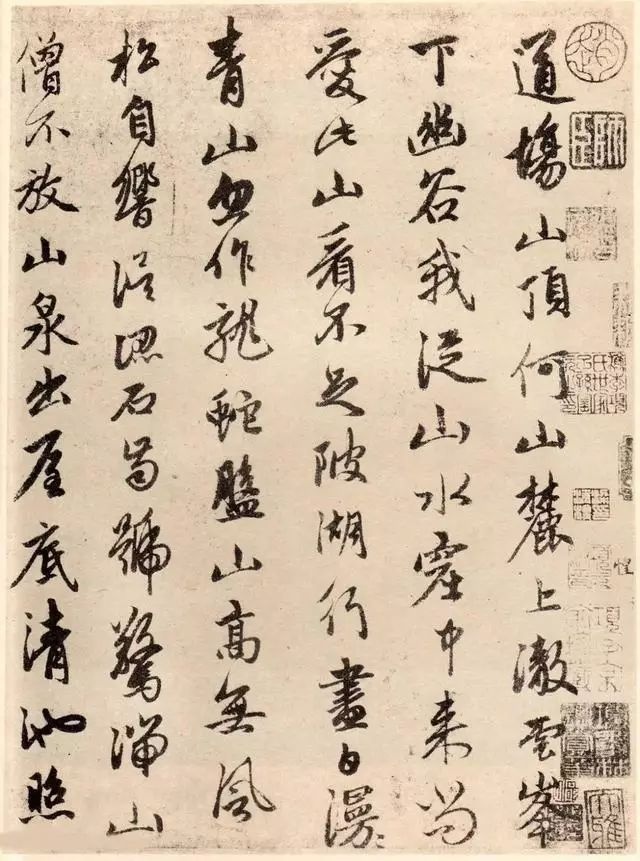 道塲山頂何山麓上澈雲峯
下幽谷我従山水窟中来尚
愛此山看不足陂湖行盡白漫〻
青山忽作龍蛇盤山高無風
松自響誤認石齒號驚湍山
僧不放山泉出屋底清池照